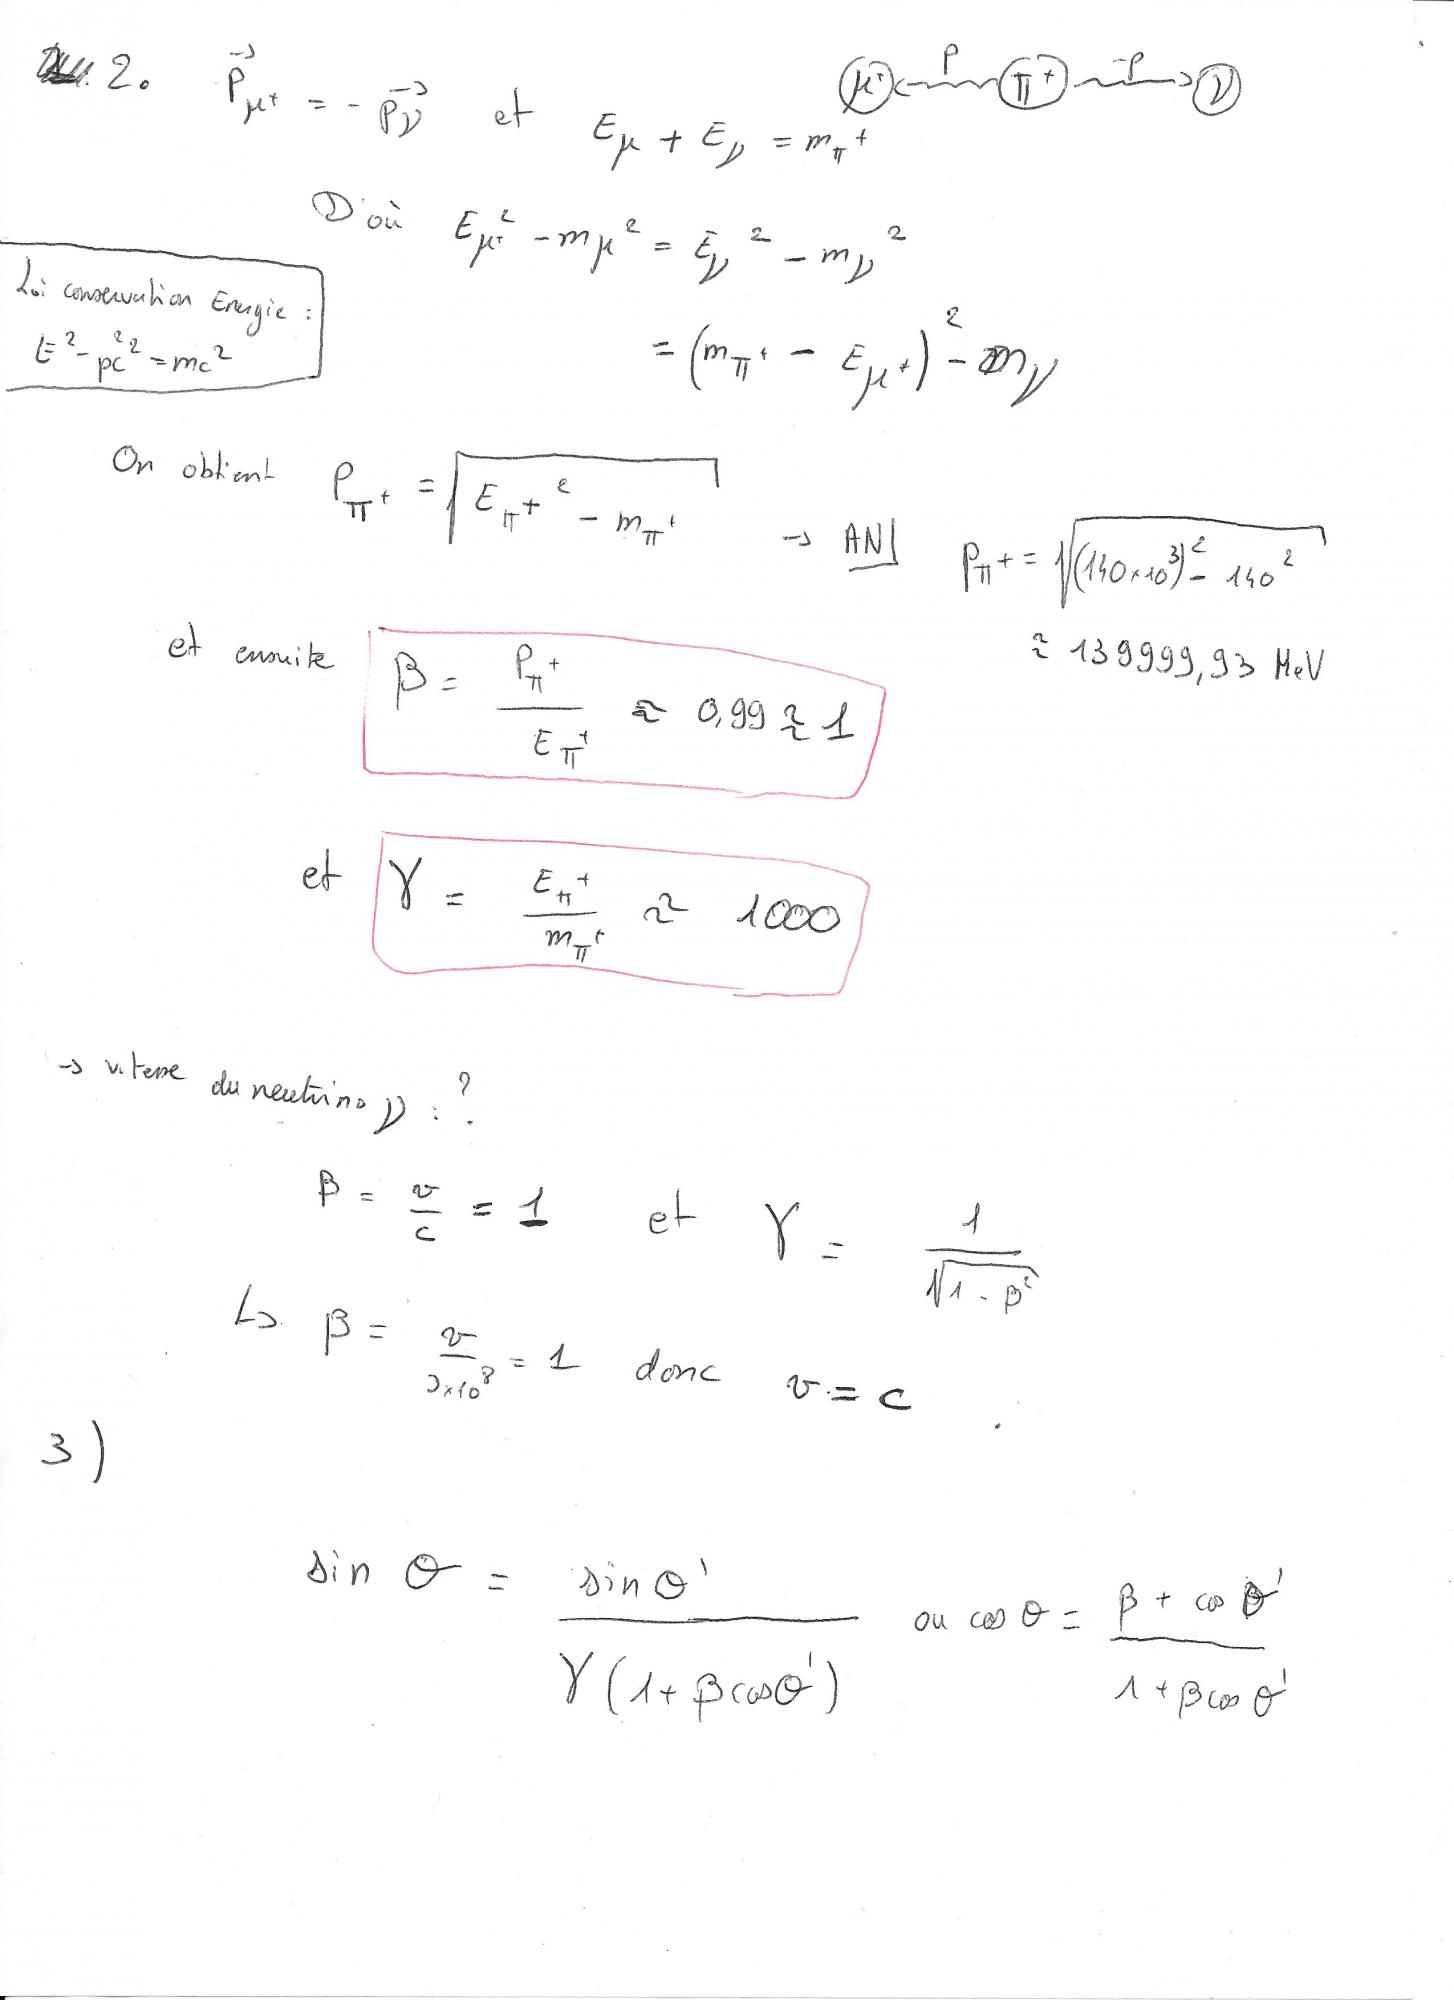 2. P⃗μ⁺ = - P⃗ν et Eμ + Eν = mπ⁺
μ⁺ P π⁺ -P ν
D'où Eμ⁺² - mμ² = Eν² - mν²
Loi conservation Energie :
E² - pc²² = mc²
= (mπ⁺ - Eμ⁺)² - mν
On obtient Pπ⁺ = √(Eπ⁺² - mπ⁺) → AN| Pπ⁺ = √((140×10³)² - 140²)
≈ 139999,93 MeV
et ensuite β = Pπ⁺ / Eπ⁺ ≈ 0,99 ≈ 1
et γ = Eπ⁺ / mπ⁺ ≈ 1000
→ vitesse du neutrino ν : ?
β = v/c = 1 et γ = 1 / √(1 - β²)
↳ β = v / 3×10⁸ = 1 donc v = c
3)
sin θ = sin θ' / γ(1 + β cos θ') ou cos θ = β + cos θ' / 1 + β cos θ'